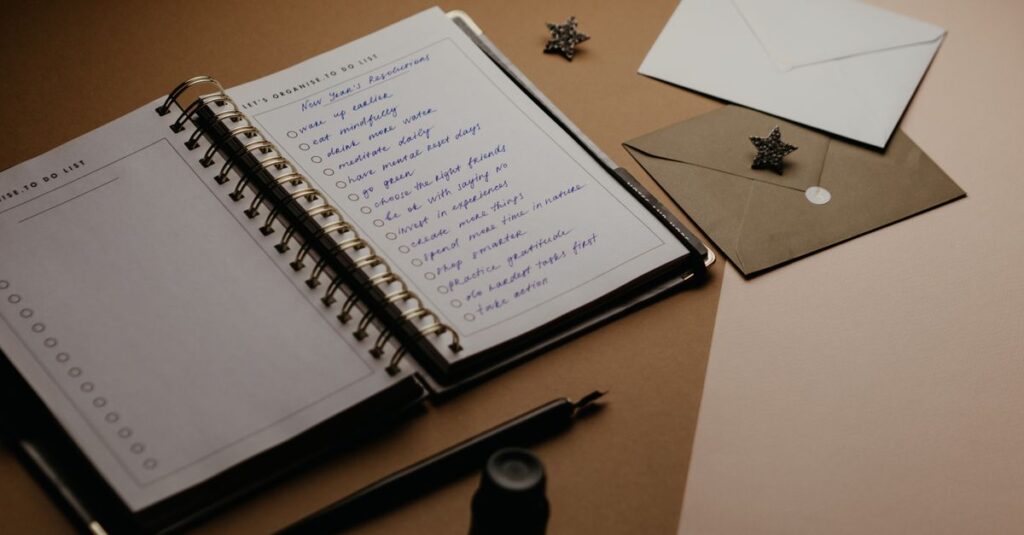 ISE·TO DO LIST
LET'S ORGANISE·TO DO LIST
New Year's Resolutions
wake up earlier
eat mindfully
drink more water
meditate daily
have mental reset days
go green
choose the right friends
be ok with saying NO
invest in experiences
create more things
spend more time in nature
shop smarter
practice gratitude
do hardest tasks first
take action